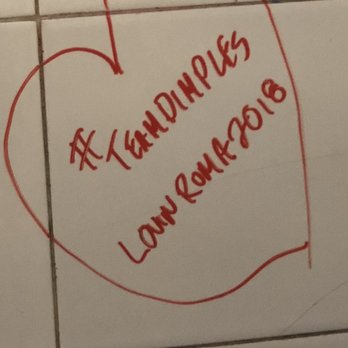 #TEAMDIMPLES
LOVIN ROMA 2018